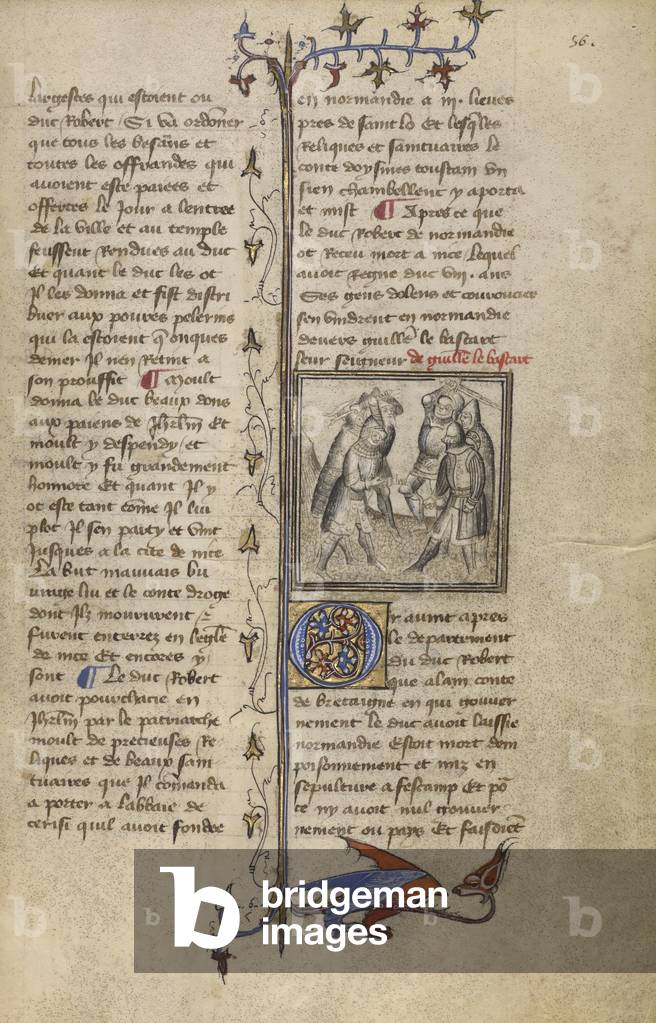 56.
largesses qui estoient ou
duc Robert / Si va ordoner
que tous les besans et
toutes les offrandes qui
avoient este paiees et
offertes le jour a lentree
de la ville et au temple
feussent Rendues au duc
Et quant le duc les ot
Il les donna et fist distri
buer aux poures pelerins
qui la estoient q̃ onques
denier Il nen Retint a
son prouffit ¶ Moult
donna le duc beaux dons
aux paiens de Jhrlm Et
moult y despendy / et
moult y fu grandement
honnore Et quant Il y
ot este tant come Il lui
plot Il sen party et vint
Jusques a la cite de nice
La but mauvais bu
urage lui et le conte droge
dont Ilz moururent &
furent enterrez en leglẽ
de nice Et encores y
sont ¶ Le duc Robert
avoit pourchacie en
Jhrlm par le patriarche
moult de precieuses Re
liques et de beaux sain
tuaires que Il cõmanda
a porter a labbaie de
cerisi quil avoit fondee
en normandie a iii. lieues
pres de saint lo Et lesq̃les
Reliques et saintuaires le
conte doysmes toustain un
sien chambellent y aporta
et mist ¶ Apres ce que
le duc Robert de normandie
ot Receu mort a nice / lequel
avoit Regne duc viii. ans
Ses gens dolens et couroucies
sen vindrent en normandie
devers guillẽ le bastart
leur seigneur de guillẽ le bastart
Or avint apres
le departement
du duc Robert
que alain conte
de bretaigne en qui gouver
nement le duc avoit laissie
normandie Estoit mort dem
poisonnement et mis en
sepulture a fescamp Et põ
ce ny avoit nul gouver
nement ou pays Et faisoiẽt
bridgeman
images